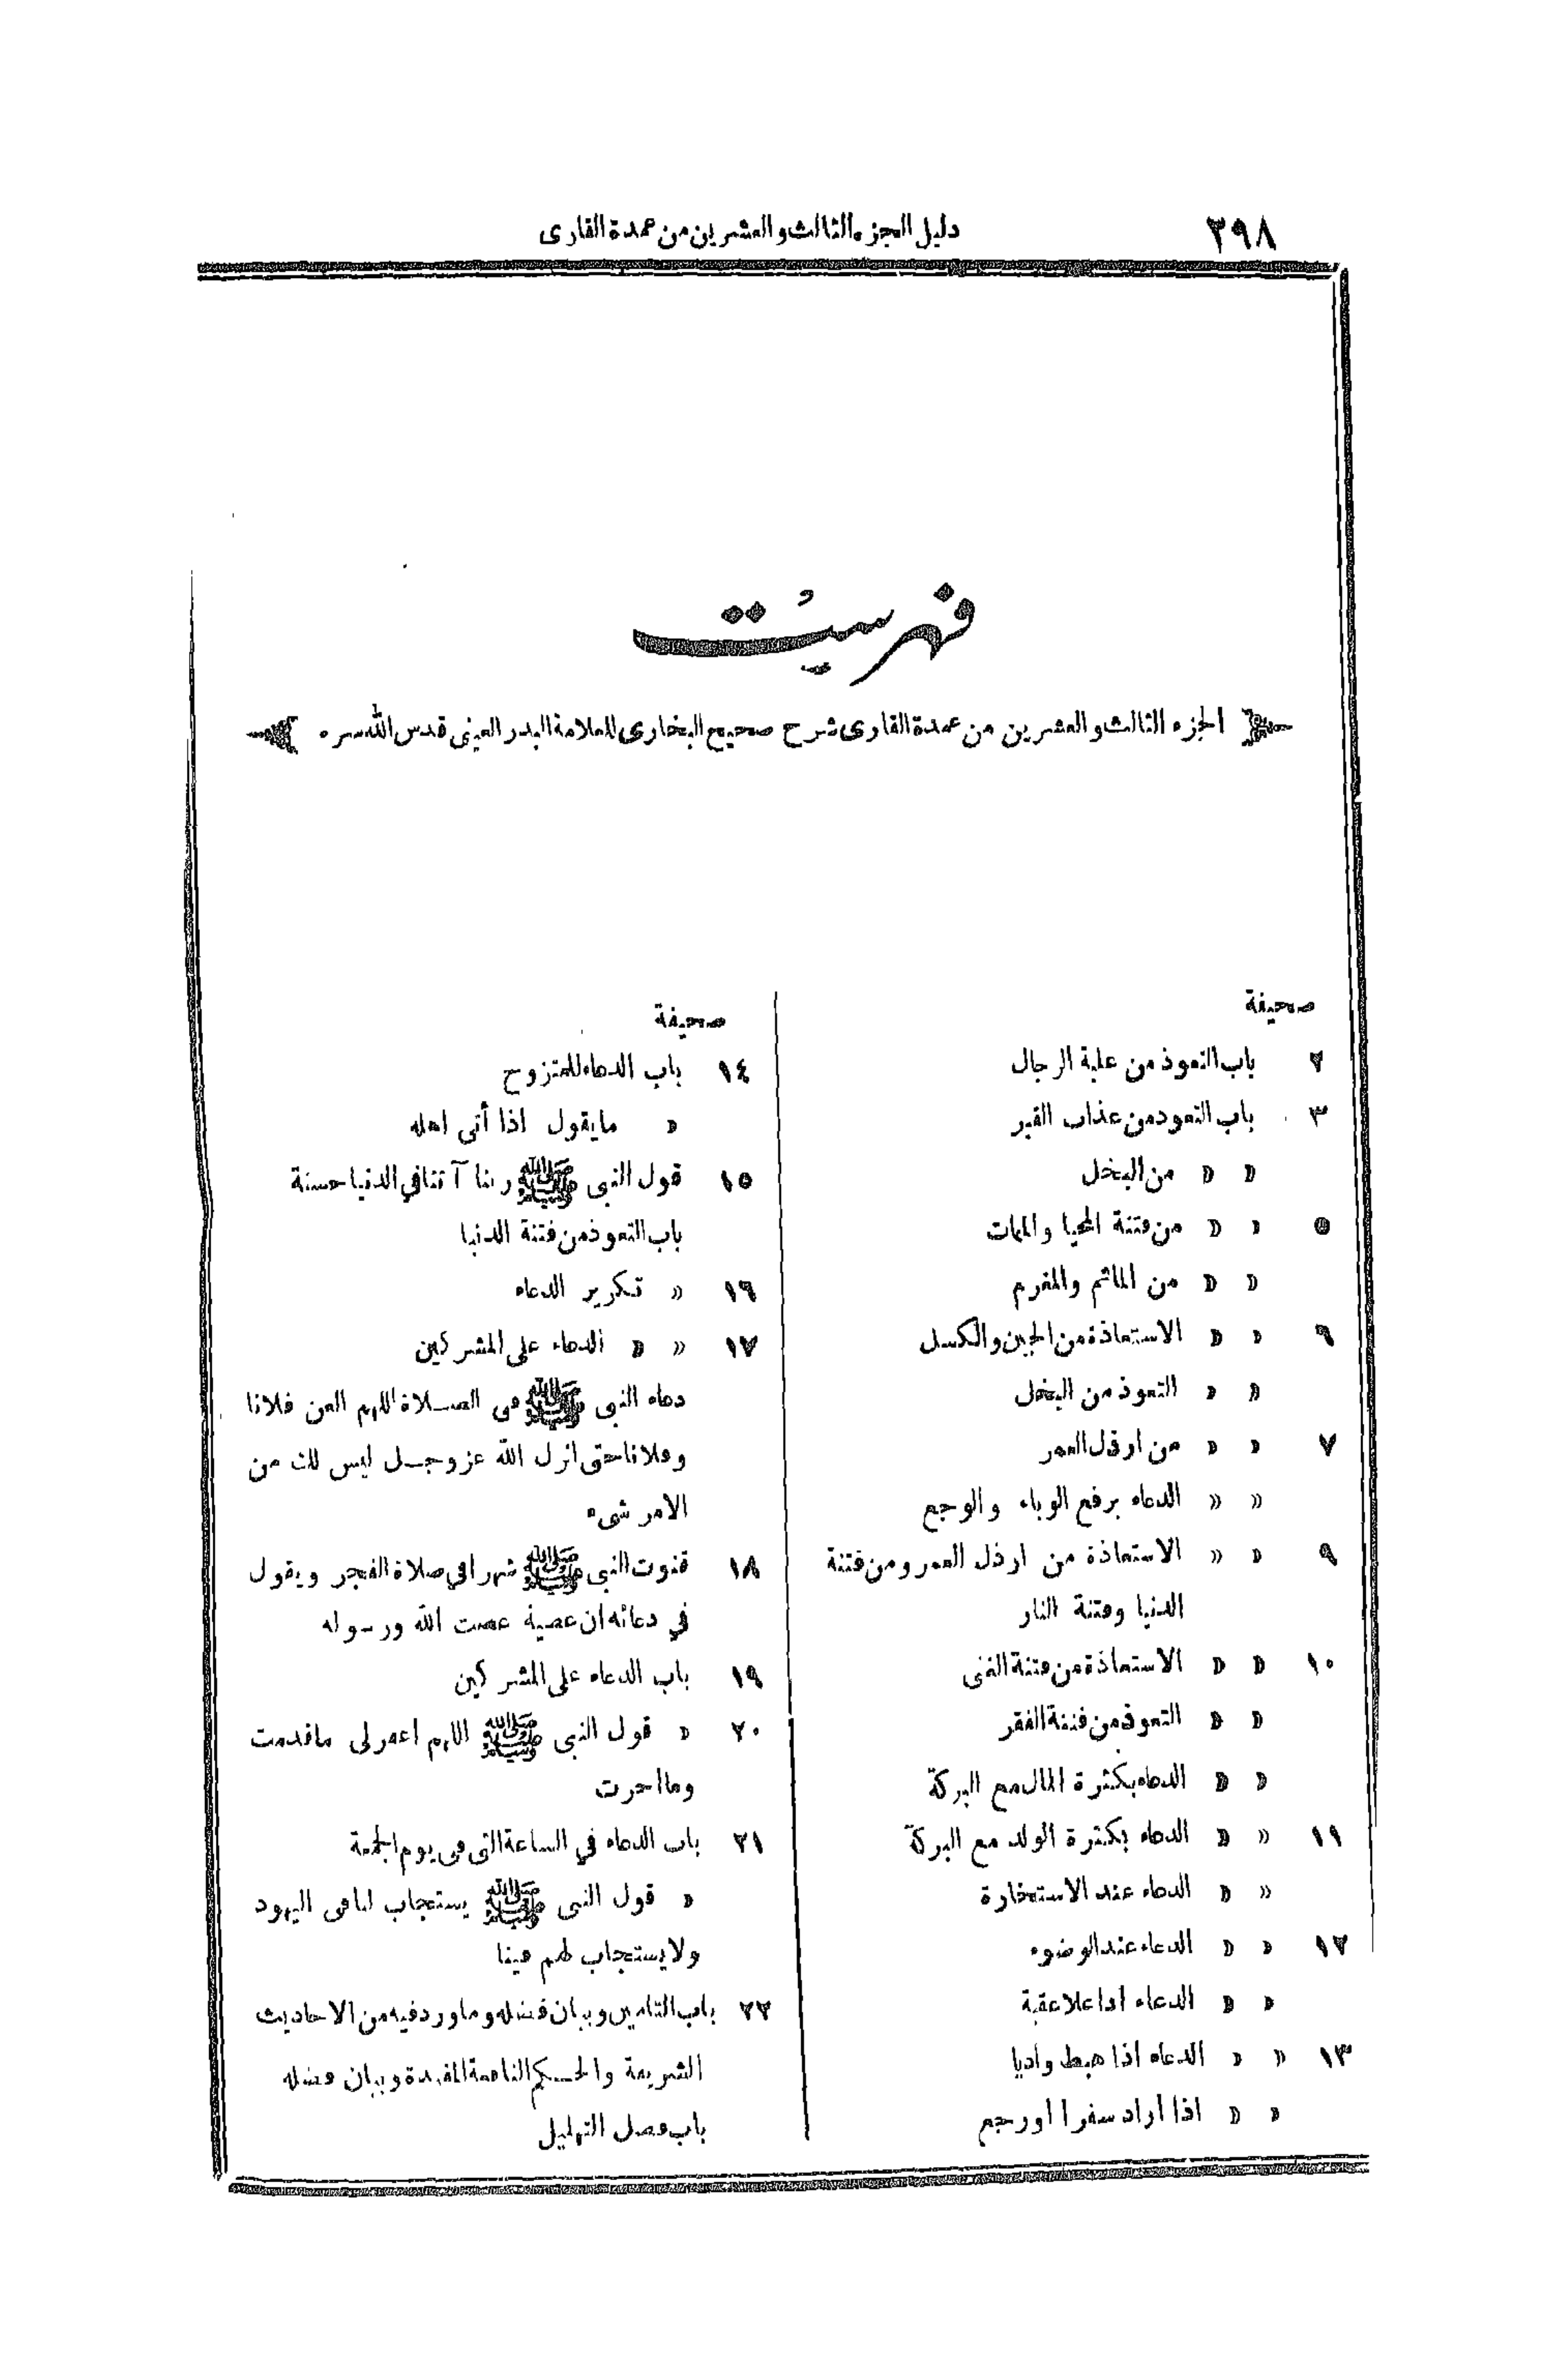 ٢٩٨
دليل الجزء الثالث والعشرين من عمدة القارى
فهرست
الجزء الثالث والعشرين من عمدة القارى شرح صحيح البخارى للعلامة البدر العينى قدس الله سره
صحيفة
٢ باب التعوذ من غلبة الرجال
٣ باب التعوذ من عذاب القبر
» » من البخل
٥ » » من فتنة المحيا والممات
» » من المأثم والمغرم
٦ » » الاستعاذة من الجبن والكسل
» » التعوذ من البخل
٧ » » من ارذل العمر
» » الدعاء برفع الوباء والوجع
٩ » » الاستعاذة من ارذل العمر ومن فتنة
الدنيا وفتنة النار
١٠ » » الاستعاذة من فتنة الغنى
» » التعوذ من فتنة الفقر
» » الدعاء بكثرة المال مع البركة
١١ » » الدعاء بكثرة الولد مع البركة
» » الدعاء عند الاستخارة
١٢ » » الدعاء عند الوضوء
» » الدعاء اذا علا عقبة
١٣ » » الدعاء اذا هبط واديا
» » اذا أراد سفرا أو رجع
صحيفة
١٤ باب الدعاء للمتزوج
» ما يقول اذا أتى اهله
١٥ قول النبى ﷺ ربنا آتنا في الدنيا حسنة
باب التعوذ من فتنة الدنيا
١٦ » تكرير الدعاء
١٧ » » الدعاء على المشركين
دعاء النبى ﷺ فى الصلاة اللهم العن فلانا
وفلانا حتى انزل الله عز وجل ليس لك من
الامر شىء
١٨ قنوت النبى ﷺ شهرا في صلاة الفجر ويقول
في دعائه ان عصية عصت الله ورسوله
١٩ باب الدعاء على المشركين
٢٠ » قول النبى ﷺ اللهم اغفر لى ما قدمت
وما اخرت
٢١ باب الدعاء في الساعة التى فى يوم الجمعة
» قول النبى ﷺ يستجاب لنا فى اليهود
ولا يستجاب لهم فينا
٢٢ باب التامين وبيان فضله وما ورد فيه من الاحاديث
الشريفة والحكم النافعة المفيدة وبيان فضله
باب فضل التهليل